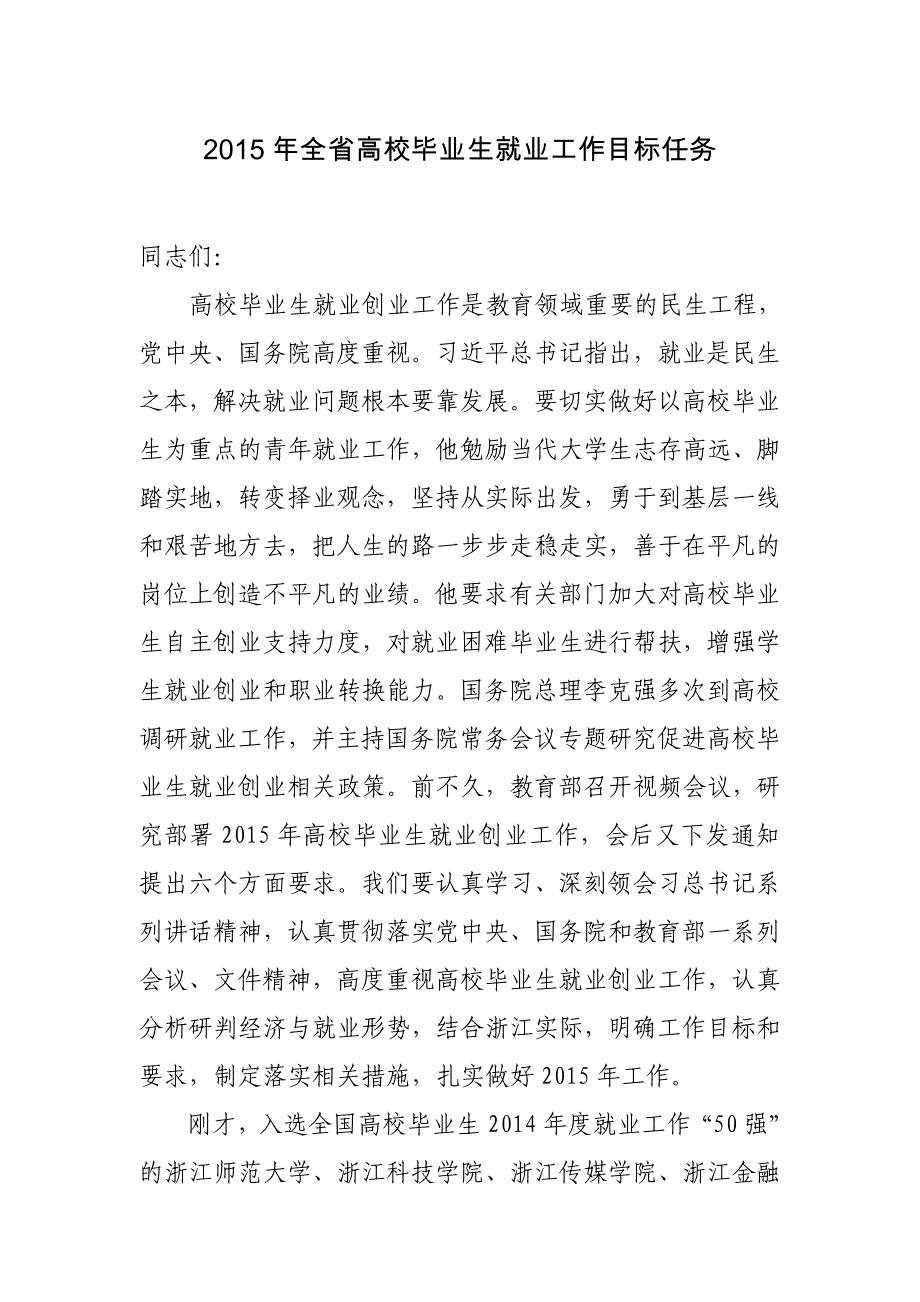 2015年全省高校毕业生就业工作目标任务
同志们：
高校毕业生就业创业工作是教育领域重要的民生工程，
党中央、国务院高度重视。习近平总书记指出，就业是民生
之本，解决就业问题根本要靠发展。要切实做好以高校毕业
生为重点的青年就业工作，他勉励当代大学生志存高远、脚
踏实地，转变择业观念，坚持从实际出发，勇于到基层一线
和艰苦地方去，把人生的路一步步走稳走实，善于在平凡的
岗位上创造不平凡的业绩。他要求有关部门加大对高校毕业
生自主创业支持力度，对就业困难毕业生进行帮扶，增强学
生就业创业和职业转换能力。国务院总理李克强多次到高校
调研就业工作，并主持国务院常务会议专题研究促进高校毕
业生就业创业相关政策。前不久，教育部召开视频会议，研
究部署2015年高校毕业生就业创业工作，会后又下发通知
提出六个方面要求。我们要认真学习、深刻领会习总书记系
列讲话精神，认真贯彻落实党中央、国务院和教育部一系列
会议、文件精神，高度重视高校毕业生就业创业工作，认真
分析研判经济与就业形势，结合浙江实际，明确工作目标和
要求，制定落实相关措施，扎实做好2015年工作。
刚才，入选全国高校毕业生2014年度就业工作“50强”
的浙江师范大学、浙江科技学院、浙江传媒学院、浙江金融